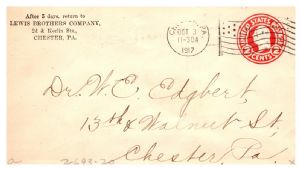 After 5 days, return to
LEWIS BROTHERS COMPANY,
2d & Kerlin Sts.,
CHESTER, PA.
PA.
OCT 3
11-30A
1917
UNITED STATES
CENTS
Dr. W. E. Edgbert,
13th & Walnut St,
Chester, Pa.
2693-20